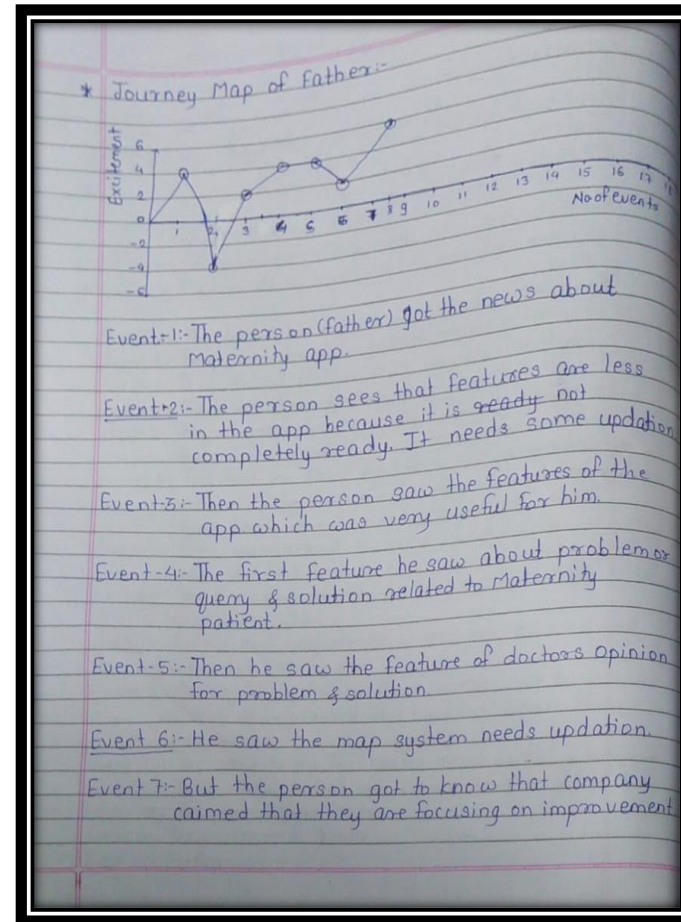 * Journey Map of Father:-
Excitement
6
4
2
0
-2
-4
-6
1 2 3 4 5 6 7 8 9 10 11 12 13 14 15 16 17 18
No of events
Event-1:- The person (father) got the news about
Maternity app.
Event-2:- The person sees that features are less
in the app because it is ready not
completely ready. It needs some updation
Event-3:- Then the person saw the features of the
app which was very useful for him.
Event-4:- The first feature he saw about problem or
query & solution related to Maternity
patient.
Event-5:- Then he saw the feature of doctors opinion
for problem & solution
Event 6:- He saw the map system needs updation.
Event 7:- But the person got to know that company
caimed that they are focusing on improvement